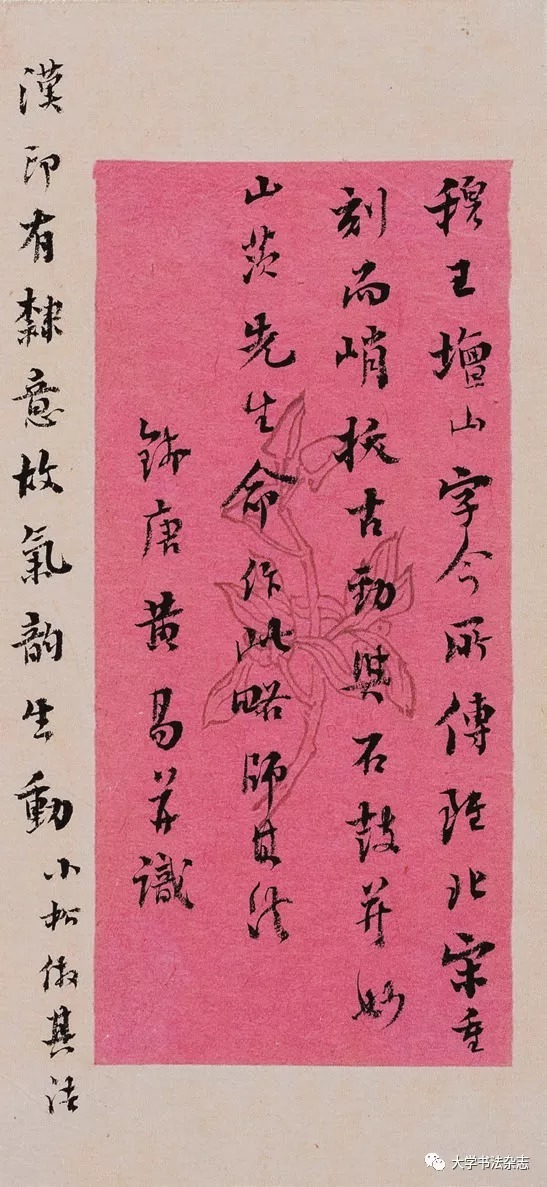 穆王壇山字今所傳雖北宋重
刻尚峭拔古勁與石鼓并妙
山茨先生命作此略師其法
錢唐黄易并識
漢印有隸意故氣韵生動
小松仿其法
大学书法杂志